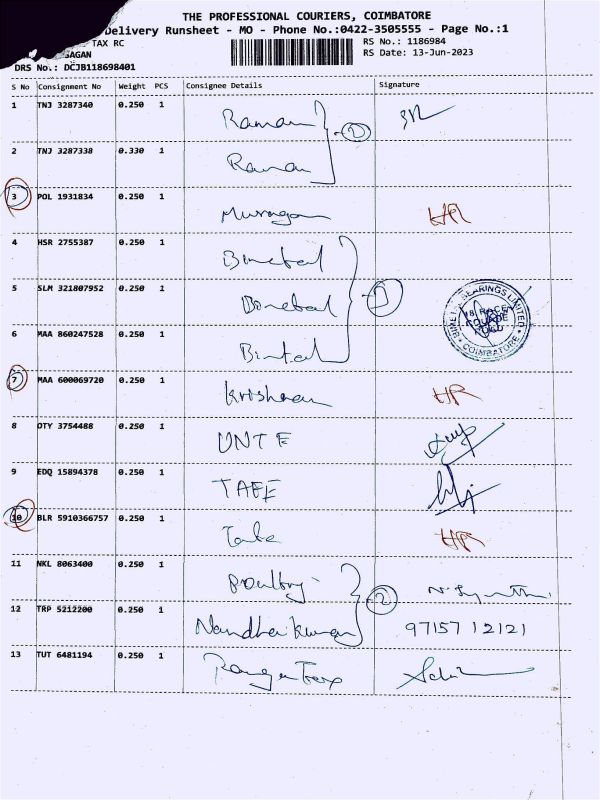 THE PROFESSIONAL COURIERS, COIMBATORE
Delivery Runsheet - MO - Phone No.:0422-3505555 - Page No.:1
TAX RC RS No.: 1186984
GAGAN RS Date: 13-Jun-2023
DRS No.: DCJB118698401
S No Consignment No Weight PCS Consignee Details Signature
1 TNJ 3287340 0.250 1 Raman
2 TNJ 3287338 0.330 1 Raman
3 POL 1931834 0.250 1 Murugan HR
4 HSR 2755387 0.250 1 Bimetal
5 SLM 321807952 0.250 1 Bimetal
BIMETAL BEARINGS LIMITED
18 RACE
COURSE
ROAD
COIMBATORE
6 MAA 860247528 0.250 1 Bimtal
7 MAA 600069720 0.250 1 Krishnan HR
8 OTY 3754488 0.250 1 UNTE
9 EDQ 15894378 0.250 1 TAFE
10 BLR 5910366757 0.250 1 Tata HR
11 NKL 8063400 0.250 1 Poultry 2
12 TRP 5212200 0.250 1 Nandhakumar 97157 12121
13 TUT 6481194 0.250 1